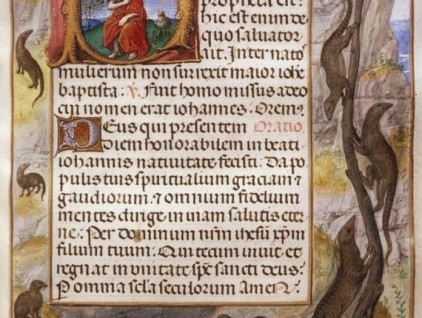 propheta est:
hic est enim de
quo saluator
ait. Inter nato
mulierum non surrexit maior iohe
baptista: V. Fuit homo missus a deo
cui nomen erat iohannes. Orem9.
Deus qui presentem Oratio.
Diem honorabilem in beati
iohannis natiuitate fecisti: Da po
pulis tuis spiritualium graciam
gaudiorum. & omnium fidelium
mentes dirige in uiam salutis eter
ne: Per dominum nrm ihesu xpm
filium tuum. Qui tecum uiuit et
regnat in unitate sps sancti deus:
Per omnia scla seculorum Amen.